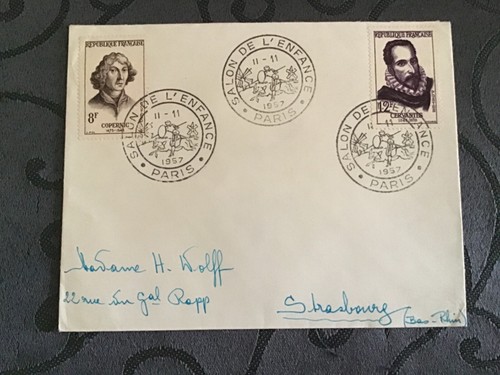 REPUBLIQUE FRANÇAISE
8F
COPERNIC
1473-1543
SALON DE L'ENFANCE
11-11
1957
• PARIS •
SALON DE L'ENFANCE
11-11
1957
• PARIS •
REPUBLIQUE FRANÇAISE
12F
CERVANTES
SALON DE L'ENFANCE
11
1957
• PARIS •
Madame H. Wolff
22 rue du Gal Rapp
Strasbourg
(Bas-Rhin)